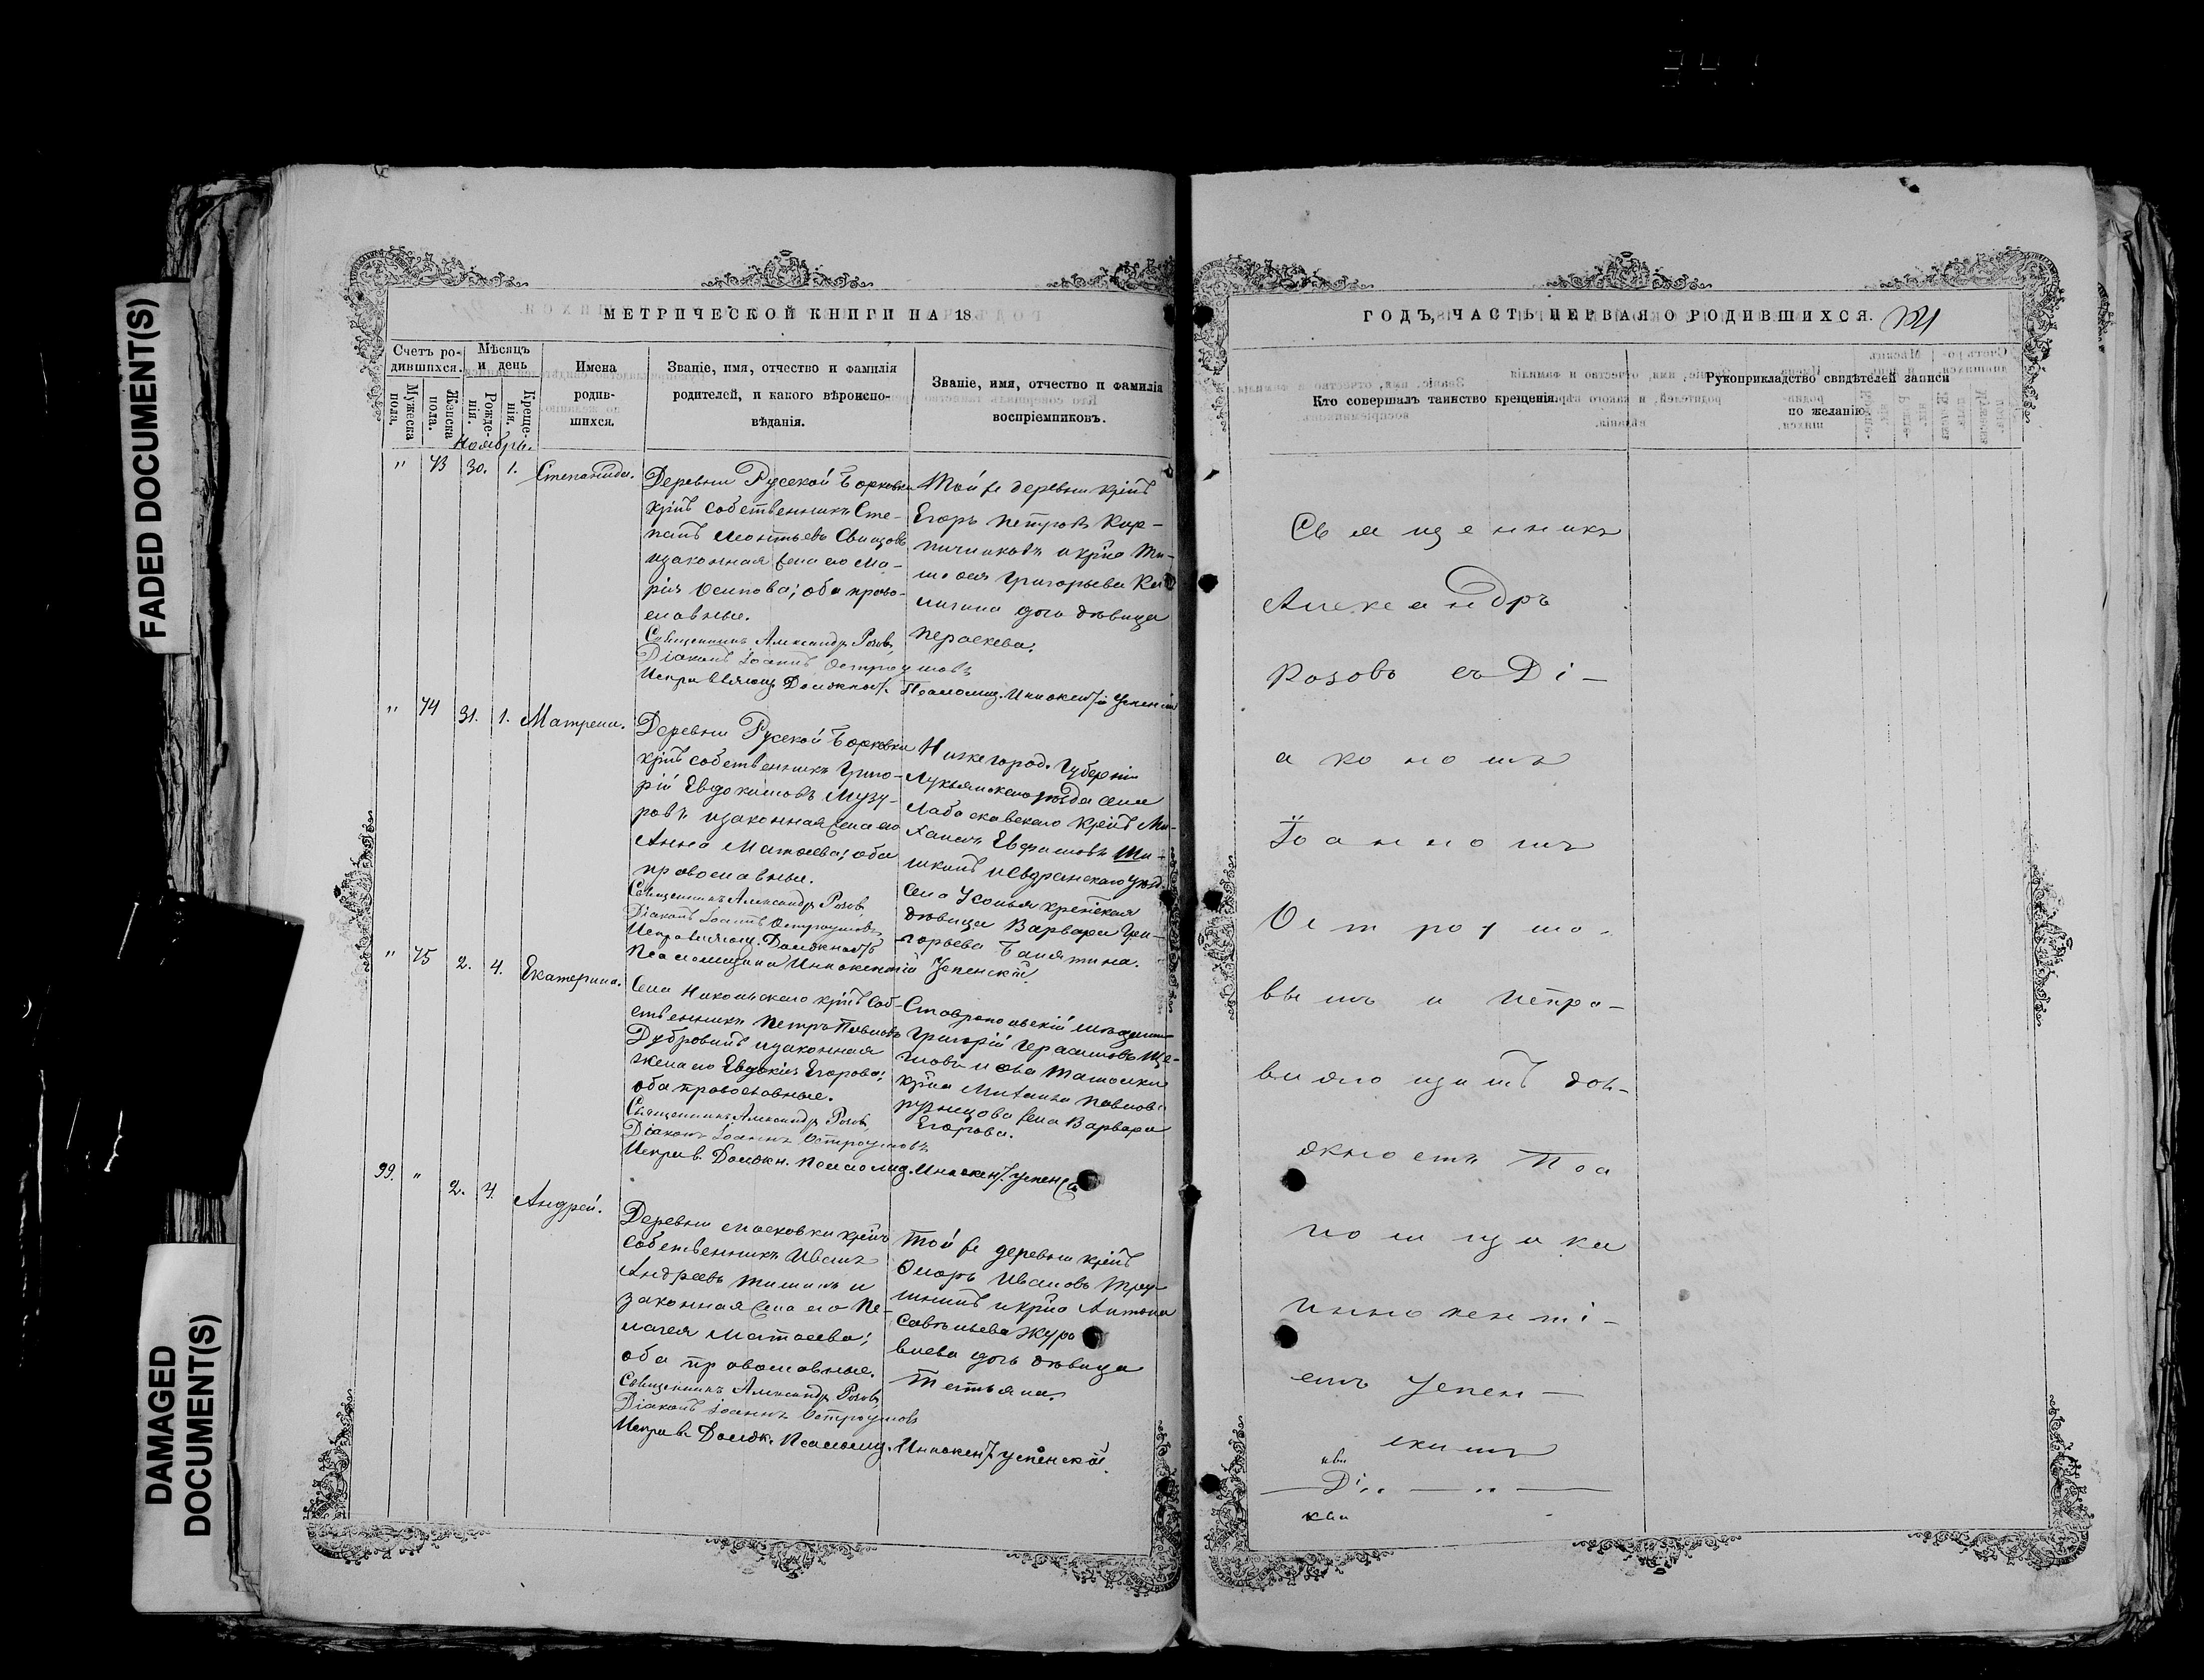 FADED DOCUMENT(S)
DAMAGED DOCUMENT(S)
МЕТРИЧЕСКОЙ КНИГИ НА 18
Счетъ ро-
дившихся.
Мѣсяцъ
и день
Мужеска пола.
Женска пола.
Рожде-
нія.
Креще-
нія.
Имена
родив-
шихся.
Званіе, имя, отчество и фамилія
родителей, и какого вѣроиспо-
вѣданія.
Званіе, имя, отчество и фамилія
воспріемниковъ.
Ноябрь.
" 73 30. 1. Степанида.
Деревни Русской Борковки
крнъ собственникъ Сте-
панъ Леонтьевъ
и законная жена его Ма-
рія Осипова; оба право-
славные.
Священникъ Александръ Розовъ,
Діаконъ Іоаннъ Остроумовъ
Исправляющ. Должность Псаломщ. Иннокентій Успенскій
Той же деревни крнъ
Егоръ Петровъ Кир-
пичниковъ и крна Ти-
моѳея Григорьева
дочь дѣвица
Параскева.
" 74 31. 1. Матрена.
Деревни Русской Борковки
крнъ собственникъ Григо-
рій Евдокимовъ Музу-
ровъ и законная жена его
Анна Матѳеева; оба
православные.
Священникъ Александръ Розовъ,
Діаконъ Іоаннъ Остроумовъ
Исправляющ. Должность
Псаломщика Иннокентій Успенскій
Нижегород. Губерніи
Лукьяновскаго уѣзда села
крнъ Ми-
хаилъ
и Сызранскаго уѣзд.
села Усолья крестьская
дѣвица Варвара Гри-
горьева
" 75 2. 4. Екатерина.
Села Никольскаго крнъ соб-
ственникъ Петръ Павловъ
Дубровинъ и законная
жена его Евдокія Егорова;
оба православные.
Священникъ Александръ Розовъ,
Діаконъ Іоаннъ Остроумовъ
Исправ. Должн. Псаломщ. Иннокент. Успенскій
Ставропольскій мѣщанинъ
Григорій Герасимовъ Ще-
гловъ и села Ташолки
крна Михаила Павлова
жена Варвара
Егорова.
99. " 2. 4. Андрей.
Деревни Московки крнъ
собственникъ Иванъ
Андреевъ Тишинъ и
законная жена его Пе-
лагея Матѳеева;
оба православные.
Священникъ Александръ Розовъ,
Діаконъ Іоаннъ Остроумовъ
Исправ. Должн. Псаломщ. Иннокент. Успенскій
Той же деревни крнъ
Ѳедоръ Ивановъ
и крна Антона
Савельева Журо
влева дочь дѣвица
Татьяна.
ГОДЪ, ЧАСТЬ ПЕРВАЯ О РОДИВШИХСЯ.
Кто совершалъ таинство крещенія.
Рукоприкладство свидѣтелей записи
по желанію
Священникъ
Александръ
Розовъ съ Ді-
акономъ
Іоанномъ
Остроумо-
вымъ и Испра-
вляющимъ дол-
жность Пса
ломщика
Иннокенті-
емъ Успен-
скимъ